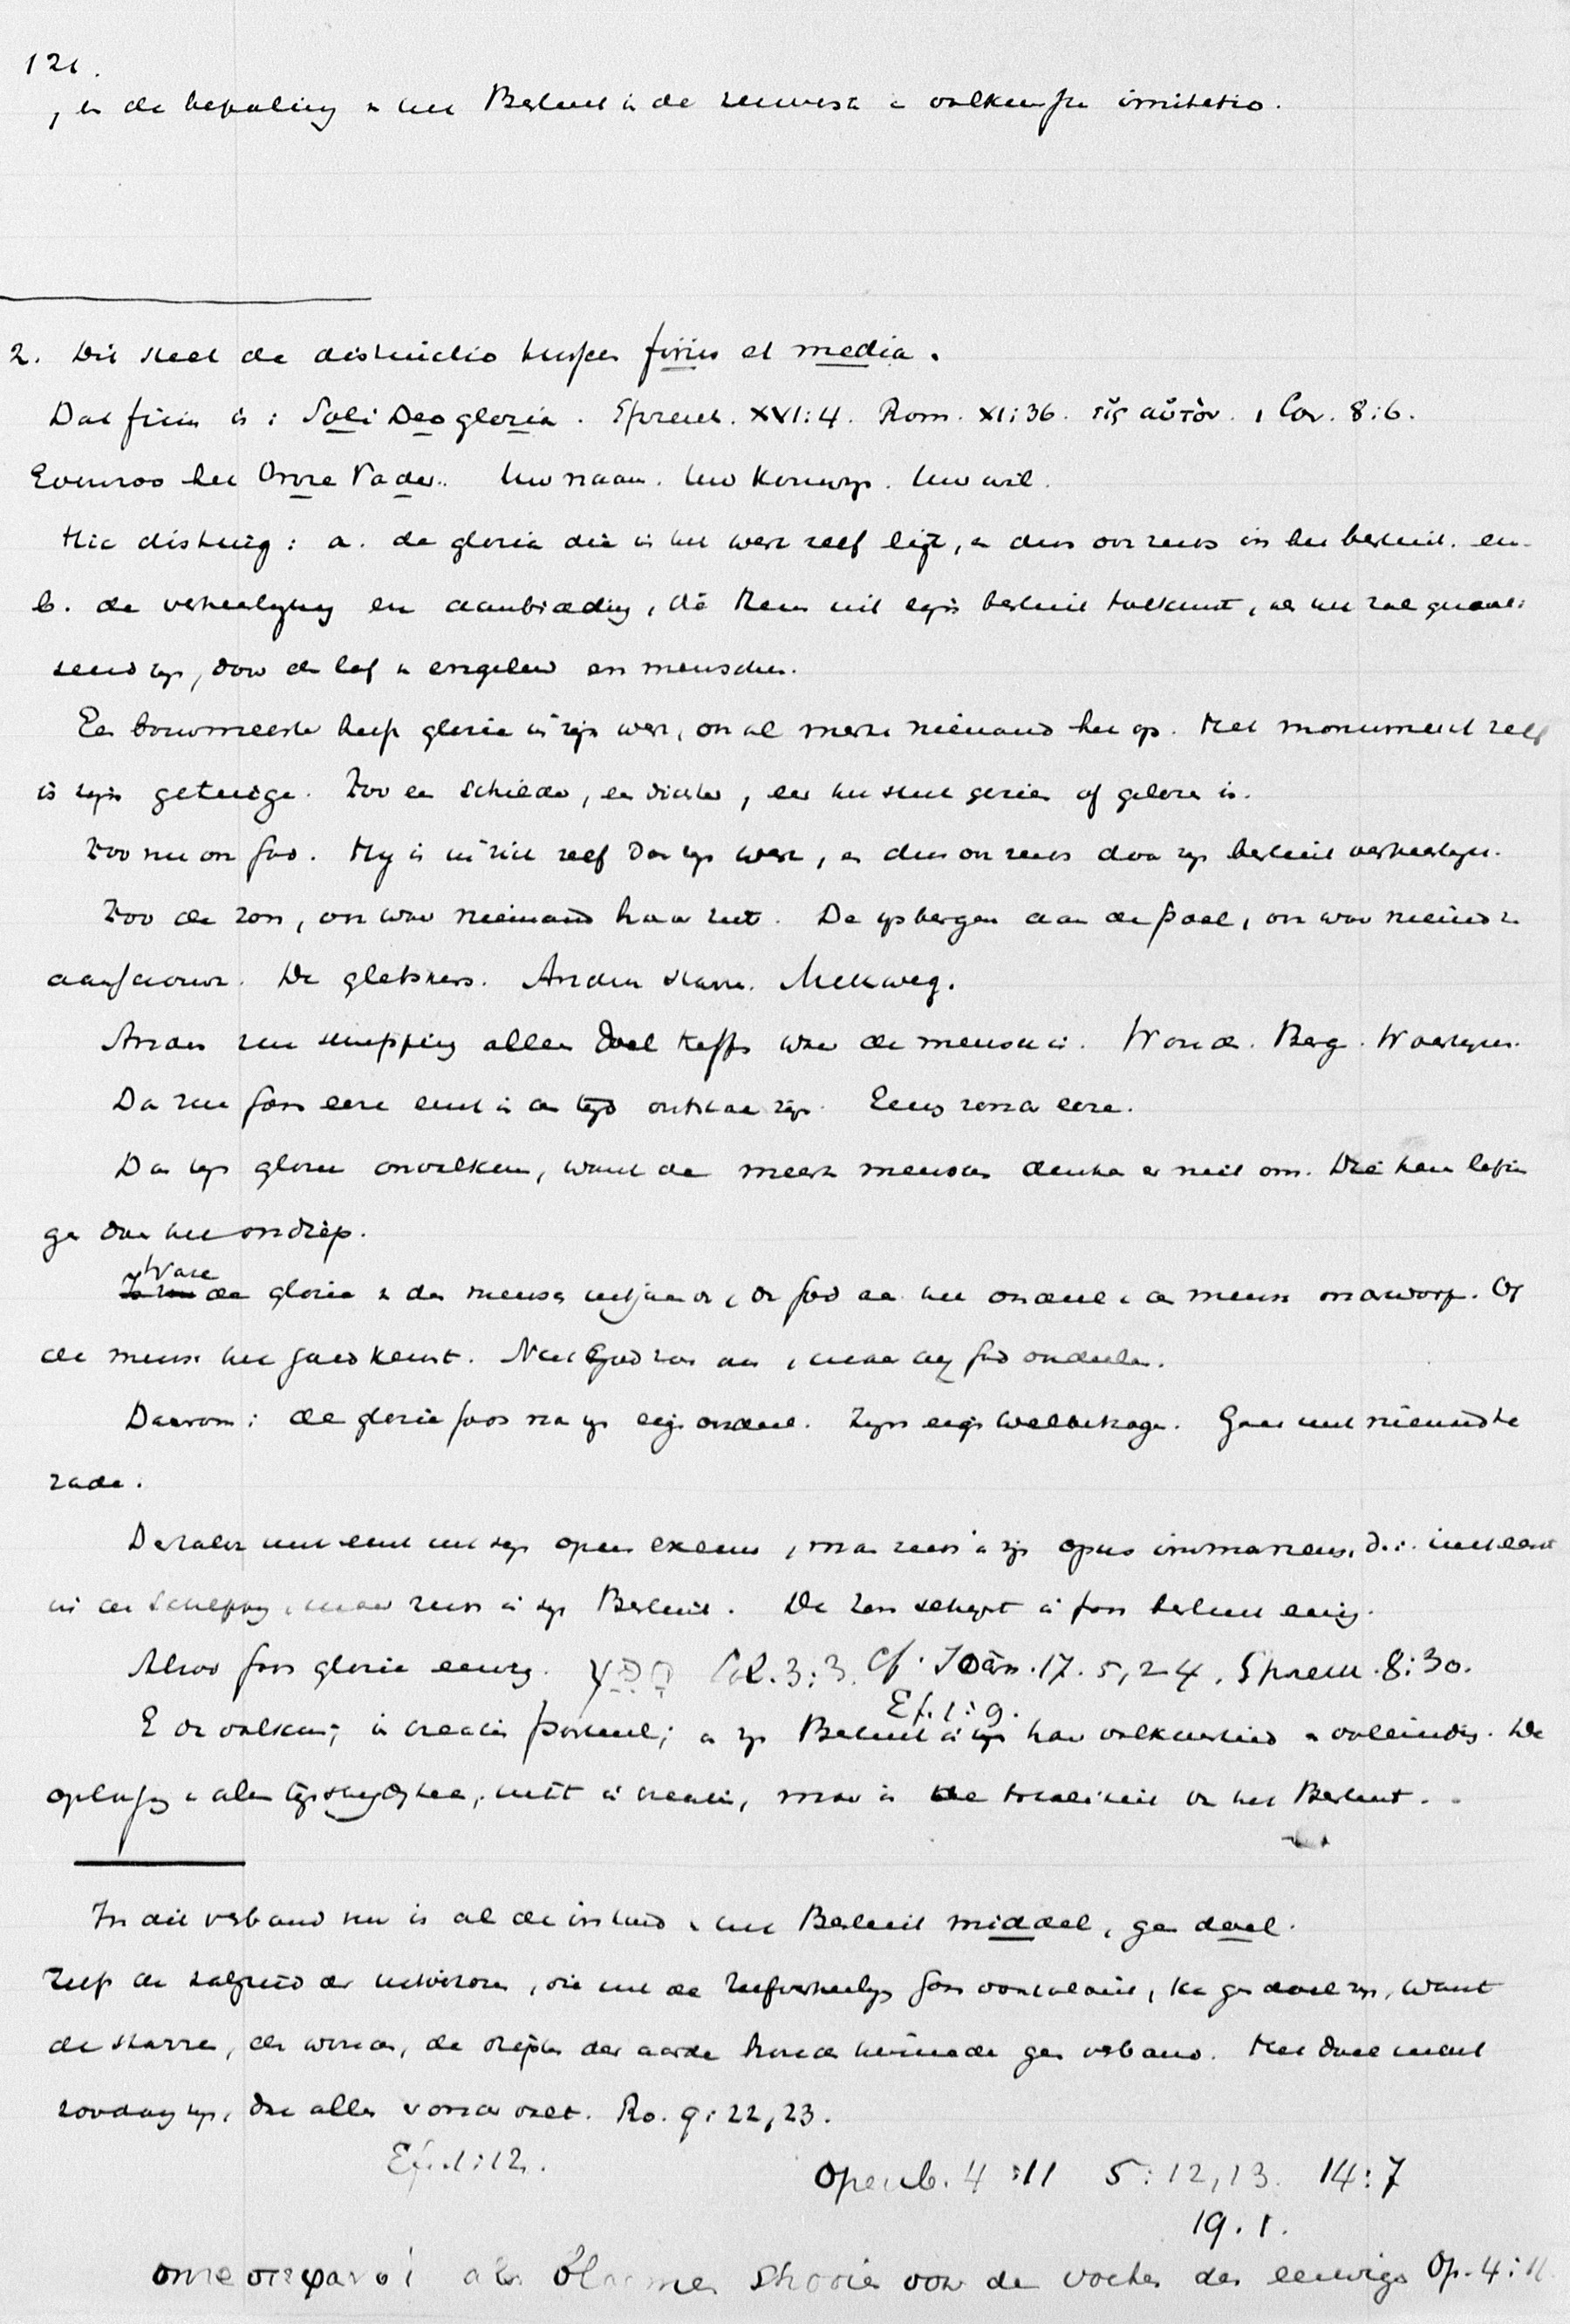 121.
, en de bepaling v het Besluit is de keuze v volkomen imitatio.
2. Dit stelt de distinctio tusschen finis et media.
Dat finis is: Soli Deo gloria. Spreuk. XVI:4. Rom. XI:36. εἰς αὐτὸν. 1 Cor. 8:6.
Evenzoo het Onze Vader. Uw naam. Uw Koninkr. Uw wil.
Hic disting: a. de gloria die in het werk zelf ligt, en dus ook reeds in het besluit. en
b. de verheerlijking en aanbidding, die Hem uit zijn besluit toekomt, als het zal gereali-
seerd zijn, door de lof v engelen en menschen.
Een bouwmeester heeft glorie in zijn werk, ook al merkt niemand het op. Het monument zelf
is zijn getuige. Zoo een schilder, een dichter, eer het stuk gezien of gelezen is.
Zoo nu ook God. Hij is in zich zelf door zijn werk, en dus ook reeds door zijn besluit verheerlijkt.
Zoo de zon, ook waar niemand haar ziet. De ijsbergen aan de pool, ook waar niemand ze
aanschouwt. De gletschers. Andere starren. Melkweg.
Anders zou schepping alleen doel treffen waar de mensch is. Woud. Berg. Woestijn.
Dan zou Gods eere eerst in den tijd ontstaan zijn. Eeuwig zonder eere.
Dan zijn glorie onvolkomen, want de meeste menschen denken er niet om. Die hem loven
gaan dan niet diep.
Ware de glorie v den mensch uitgaande, dan God aan het oordeel v den mensch onderworp. Of
de mensch het goed keurt. Niet God zou den mensch, maar deze God oordeelen.
Daarom: de glorie Gods na zijn eigen oordeel. Zijn eigen welbehagen. Gaat met niemand te
rade.
Derhalve niet eerst uit zijn opera exeuntia, maar reeds in zijn opus immanens, d.i. niet eerst
in de schepping, maar reeds in zijn Besluit. De zon schijnt in Gods besluit eeuwig.
Alzoo Gods glorie eeuwig. Col. 3:3. Cf. Joan. 17. 5, 24. Spreuk. 8:30.
Ef. 1:9.
in zijn Besluit is haar volkomenheid v voleinding. De
oplossing v alle tegenstrijdigheden, niet in creatie, maar in de totaliteit van het Besluit.
In dit verband nu is al de inhoud v het Besluit middel, geen doel.
Zelfs de zaligheid der uitverkorenen, die uit de zelfverheerlijking Gods voortvloeit, kan geen doel zijn, want
de starren, de wouden, de diepten der aarde houden hiermede geen verband. Het doel moet
zoodanig zijn, dat alles eronder valt. Ro. 9:22,23.
Ef. 1:12.
Openb. 4:11 5:12,13. 14:7
19.1.
onze στέφανοί als bloemen strooien voor de voeten des eeuwigen Op. 4:11